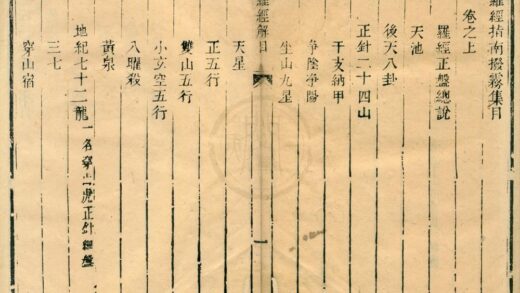 羅經指南撥霧集目
卷之上
羅經正盤總說
天池
後天八卦
正針二十四山
干支納甲
淨陰淨陽
坐山九星
羅經解目
一
天星
正五行
雙山五行
小玄空五行
八曜殺
黃泉
地紀七十二龍 一名穿山虎正針經盤
三七
穿山宿